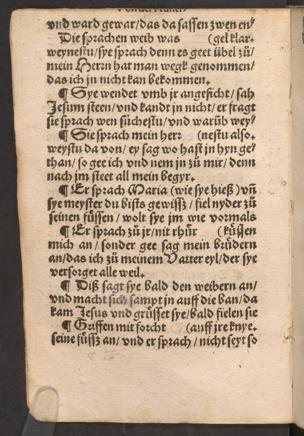 vnd ward gewar/das da sassen zwen en⸗
Die sprachen weib was (gel klar.
weynestu/sye sprach denn es geet übel zů/
mein Herrn hat man wegk genommen/
das ich jn nicht kan bekommen.
¶ Sye wendet vmb jr angesicht/sah
Jesum steen/vnd kandt jn nicht/er fragt
sie sprach wen süchestu/vnd warüb wey⸗
¶ Sie sprach mein herr (nestu also.
weystu da von/ey sag wo hast jn hyn ge⸗
than/so gee ich vnd nem jn zů mir/denn
nach jm steet all mein begyr.
¶ Er sprach Maria (wie sye hieß) vñ
sye meyster du bists gewiß/fiel nyder zů
seinen füssen/wolt sye jm wie vormals
¶ Er sprach zů jr/nit rhür (küssen
mich an/sonder gee sag mein brüdern
an/das ich zů meinem Vatter eyl/der sye
versorget alle weil.
¶ Diß sagt sye bald den weibern an/
vnd macht sich sampt jn auff die ban/da
kam Jesus vnd grüsset sye/bald fielen sie
¶ Griffen mit forcht (auff jre knye.
seine füssz an/vnd er sprach/nicht seyt so